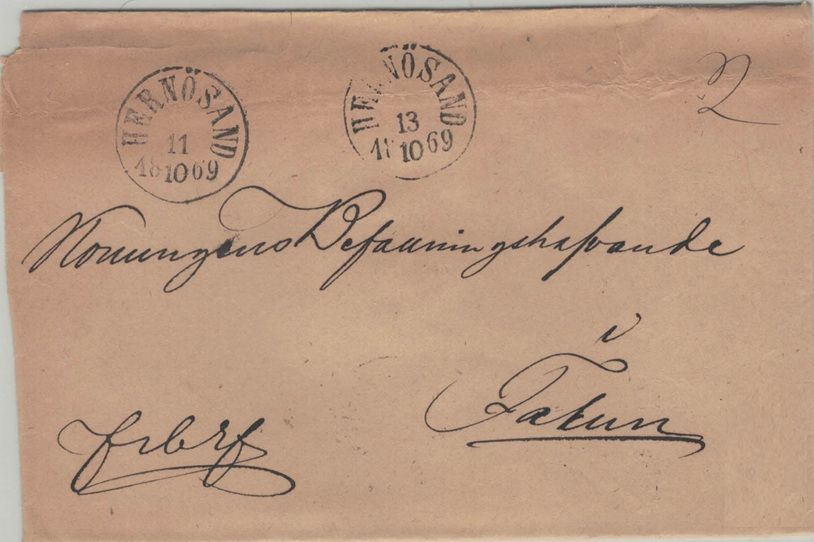 HERNÖSAND
11
18 10 69
HERNÖSAND
13
18 10 69
Konungens Befallningshafvande
i
Falun
frbrf